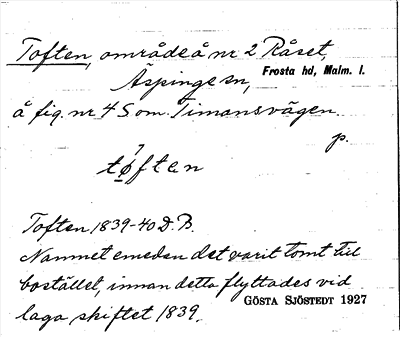 Toften, område å nr 2 Råset,
Äspinge sn, Frosta hd, Malm. l.
å fig. nr 4 S om Timansvägen.
p.
tøften
Toften 1839-40 D. B.
Namnet emedan det varit tomt till
bostället, innan detta flyttades vid
laga skiftet 1839.
GÖSTA SJÖSTEDT 1927